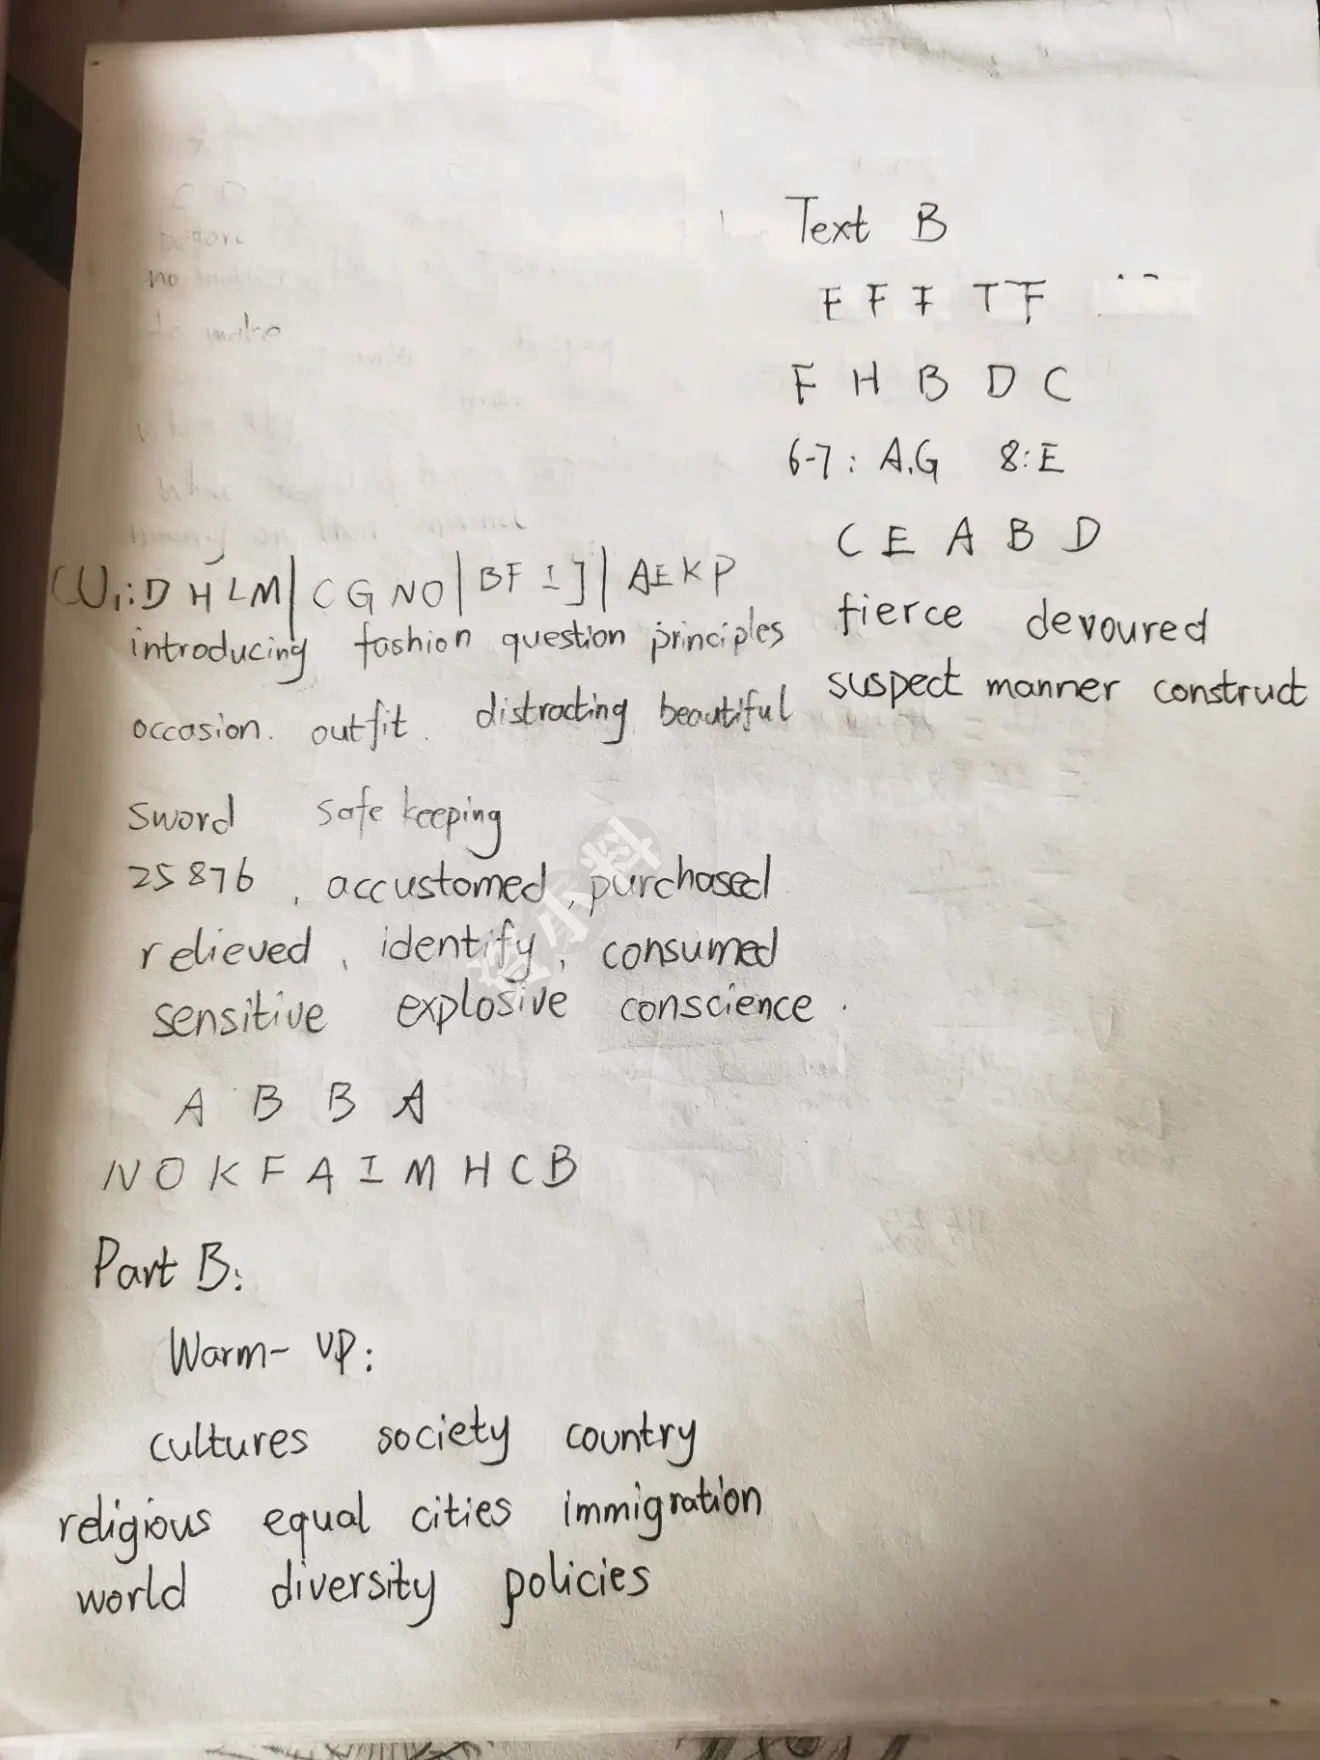 Text B
F F F T F
F H B D C
6-7: A.G 8:E
C E A B D
fierce devoured
suspect manner construct
D H L M | C G N O | B F I J | A E K P
introducing fashion question principles
occasion. outfit. distracting beautiful
sword safe keeping
25876, accustomed, purchased
relieved, identify, consumed
sensitive explosive conscience.
A B B A
N O K F A I M H C B
Part B:
Warm-up:
cultures society country
religious equal cities immigration
world diversity policies
蛋小料